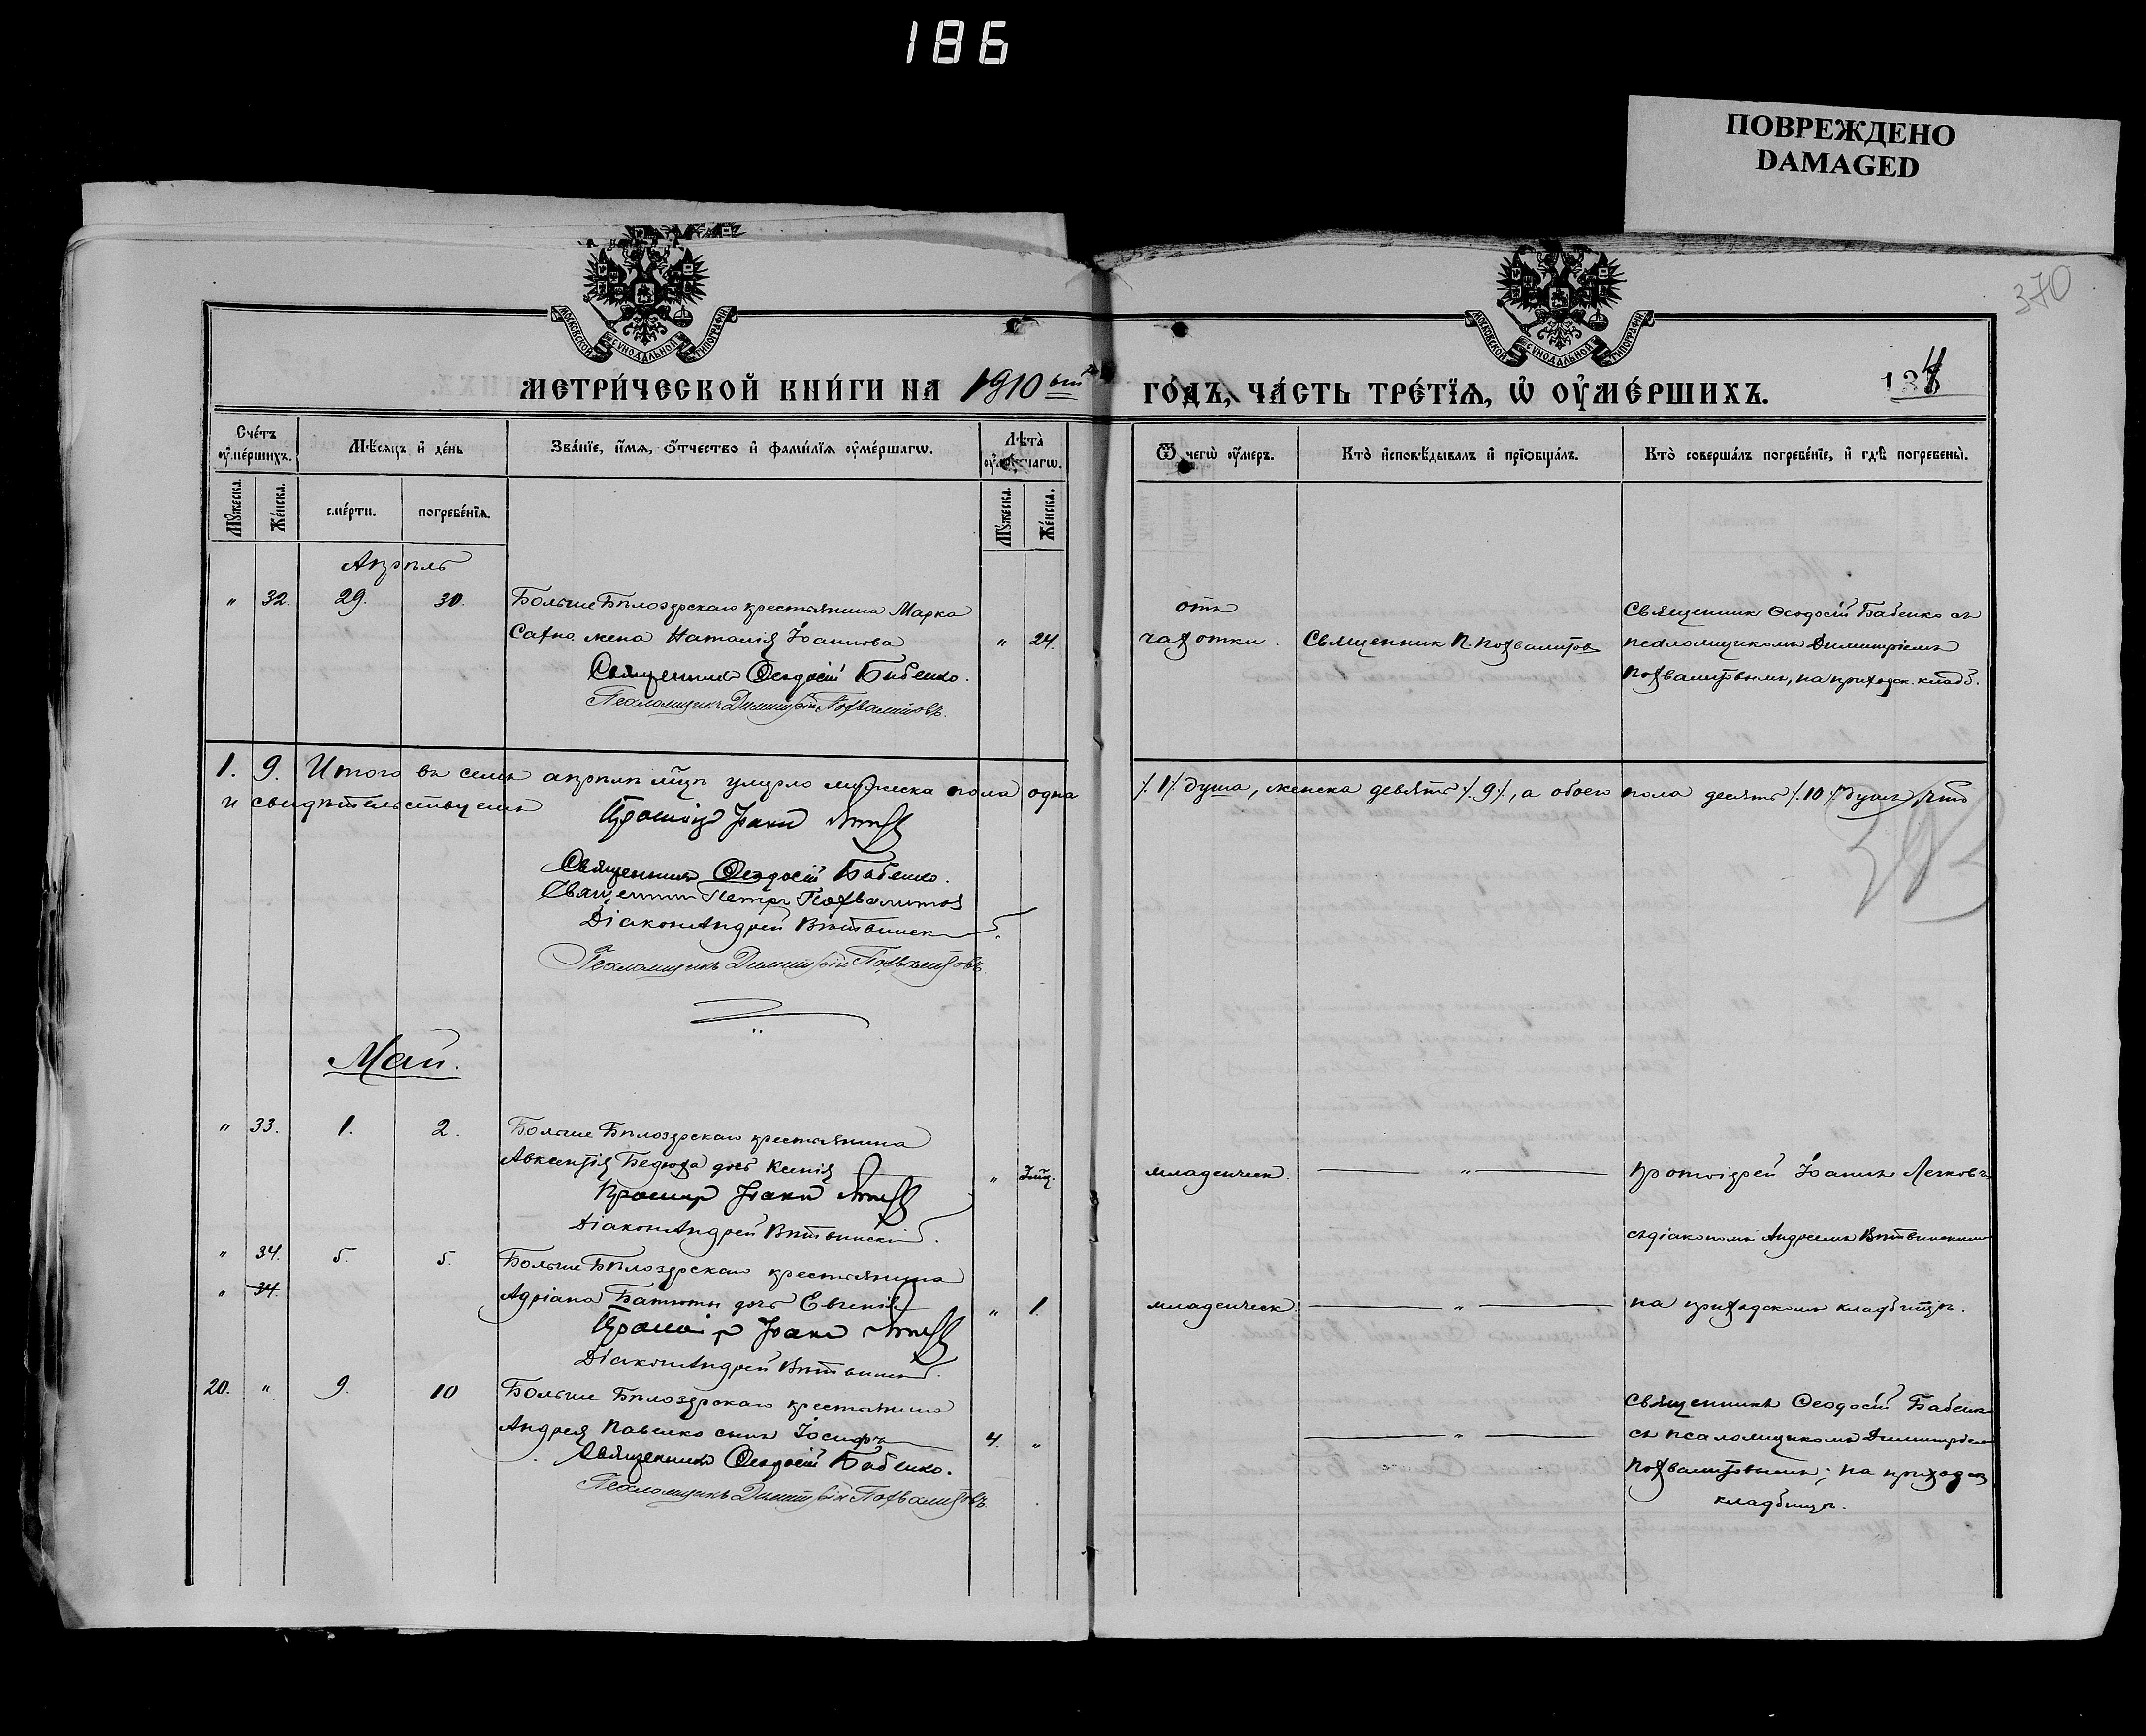 186
ПОВРЕЖДЕНО
DAMAGED
370
МОСКОВСКОЙ СѴНОДАЛЬНОЙ ТИПОГРАФІИ
МОСКОВСКОЙ СѴНОДАЛЬНОЙ ТИПОГРАФІИ
МЕТРИ́ЧЕСКОЙ КНИ́ГИ НА 1910
ГО́ДЪ, ЧА́СТЬ ТРЕ́ТЇѦ, Ѡ҆ ОУ҆МЕ́РШИХЪ.
Сче́тъ оу҆ме́ршихъ.
Мѣ́сѧцъ и҆ де́нь
Зва́нїе, и҆́мѧ, ѻ҆́тчество и҆ фамѝлїѧ оу҆ме́ршагѡ.
Лѣ́та̀
Ѿ чегѡ̀ оу҆́меръ.
Кто̀ и҆сповѣ́дывалъ и҆ прїѡбща́лъ.
Кто̀ соверша́лъ погребе́нїе, и҆ гдѣ̀ погребены̀.
Мꙋ́жеска.
Же́нска.
сме́рти.
погребе́нїѧ.
Мꙋ́жеска.
Же́нска.
Апрѣль
" 32. 29. 30. Больше Бѣлозерскаго крестьянина Марка
жена Наталія Іоаннова " 24.
Священникъ Ѳеодосій Бабенко.
Псаломщикъ Димитрій Похвалитовъ.
отъ
чахотки.
Священникъ П. Похвалитовъ
Священникъ Ѳеодосій Бабенко съ
псаломщикомъ Димитріемъ
Похвалитовымъ, на приходск. кладб.
1. 9. Итого въ семъ апрѣлѣ мцѣ умерло мужеска пола одна /.1./ душа, женска девять /.9./, а обоего пола десять /.10./ душъ, что
и свидѣтельствуемъ
Священникъ Ѳеодосій Бабенко.
Священникъ Петръ Похвалитовъ
Діаконъ Андрей Вѣтвинскій.
Псаломщикъ Димитрій Похвалитовъ.
Май.
" 33. 1. 2. Больше Бѣлозерскаго крестьянина
Авксентія Бедюха дочь Ксенія "
Діаконъ Андрей Вѣтвинскій.
младенческ. "
Протоіерей Іоаннъ Легковъ
съ діакономъ Андреемъ Вѣтвинскимъ
" 34. 5. 5. Больше Бѣлозерскаго крестьянина
" 34.
Адріана Батюты дочь Евгенія " 1.
Діаконъ Андрей Вѣтвинскій.
младенческ. "
на приходскомъ кладбищѣ.
20. " 9. 10 Больше Бѣлозерскаго крестьянина
Андрея Павелко сынъ Іосифъ 4. "
Священникъ Ѳеодосій Бабенко.
Псаломщикъ Димитрій Похвалитовъ.
"
Священникъ Ѳеодосій Бабенко
съ псаломщикомъ Димитріемъ
Похвалитовымъ; на приходск.
кладбищѣ.